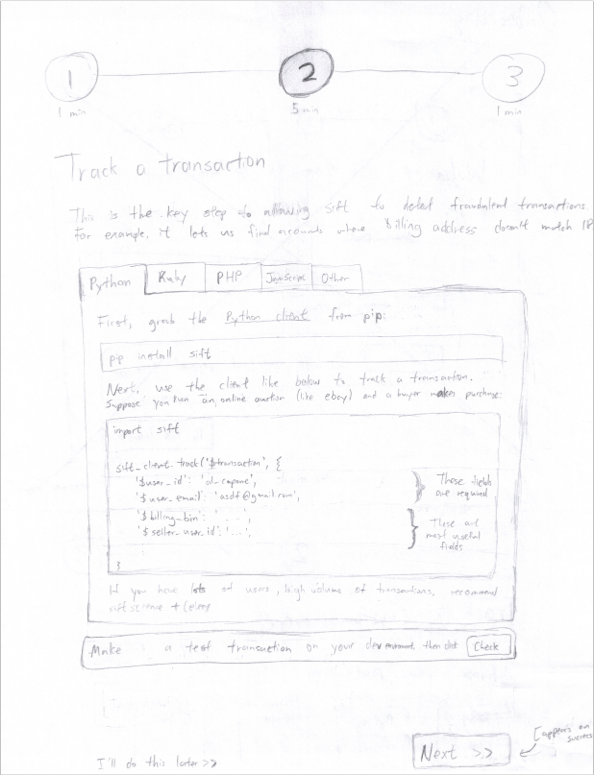 1
2
3
1 min
5 min
1 min
Track a transaction
This is the key step to allowing sift to detect fraudulent transactions.
For example, it lets us find accounts where billing address doesn't match IP
Python
Ruby
PHP
JavaScript
Other
First, grab the Python client from pip:
pip install sift
Next, use the client like below to track a transaction.
Suppose you run an online auction (like ebay) and a buyer makes purchase:
import sift
sift_client.track('$transaction', {
'$user_id': 'al_capone',
'$user_email': 'asdf@gmail.com',
'$billing_bin': '...',
'$seller_user_id': '...',
}
These fields
are required
These are
most useful
fields
If you have lots of users, high volume of transactions, recommend
sift science +
Make a test transaction on your dev environment then click
Check
I'll do this later >>
Next >>
[appears on
success